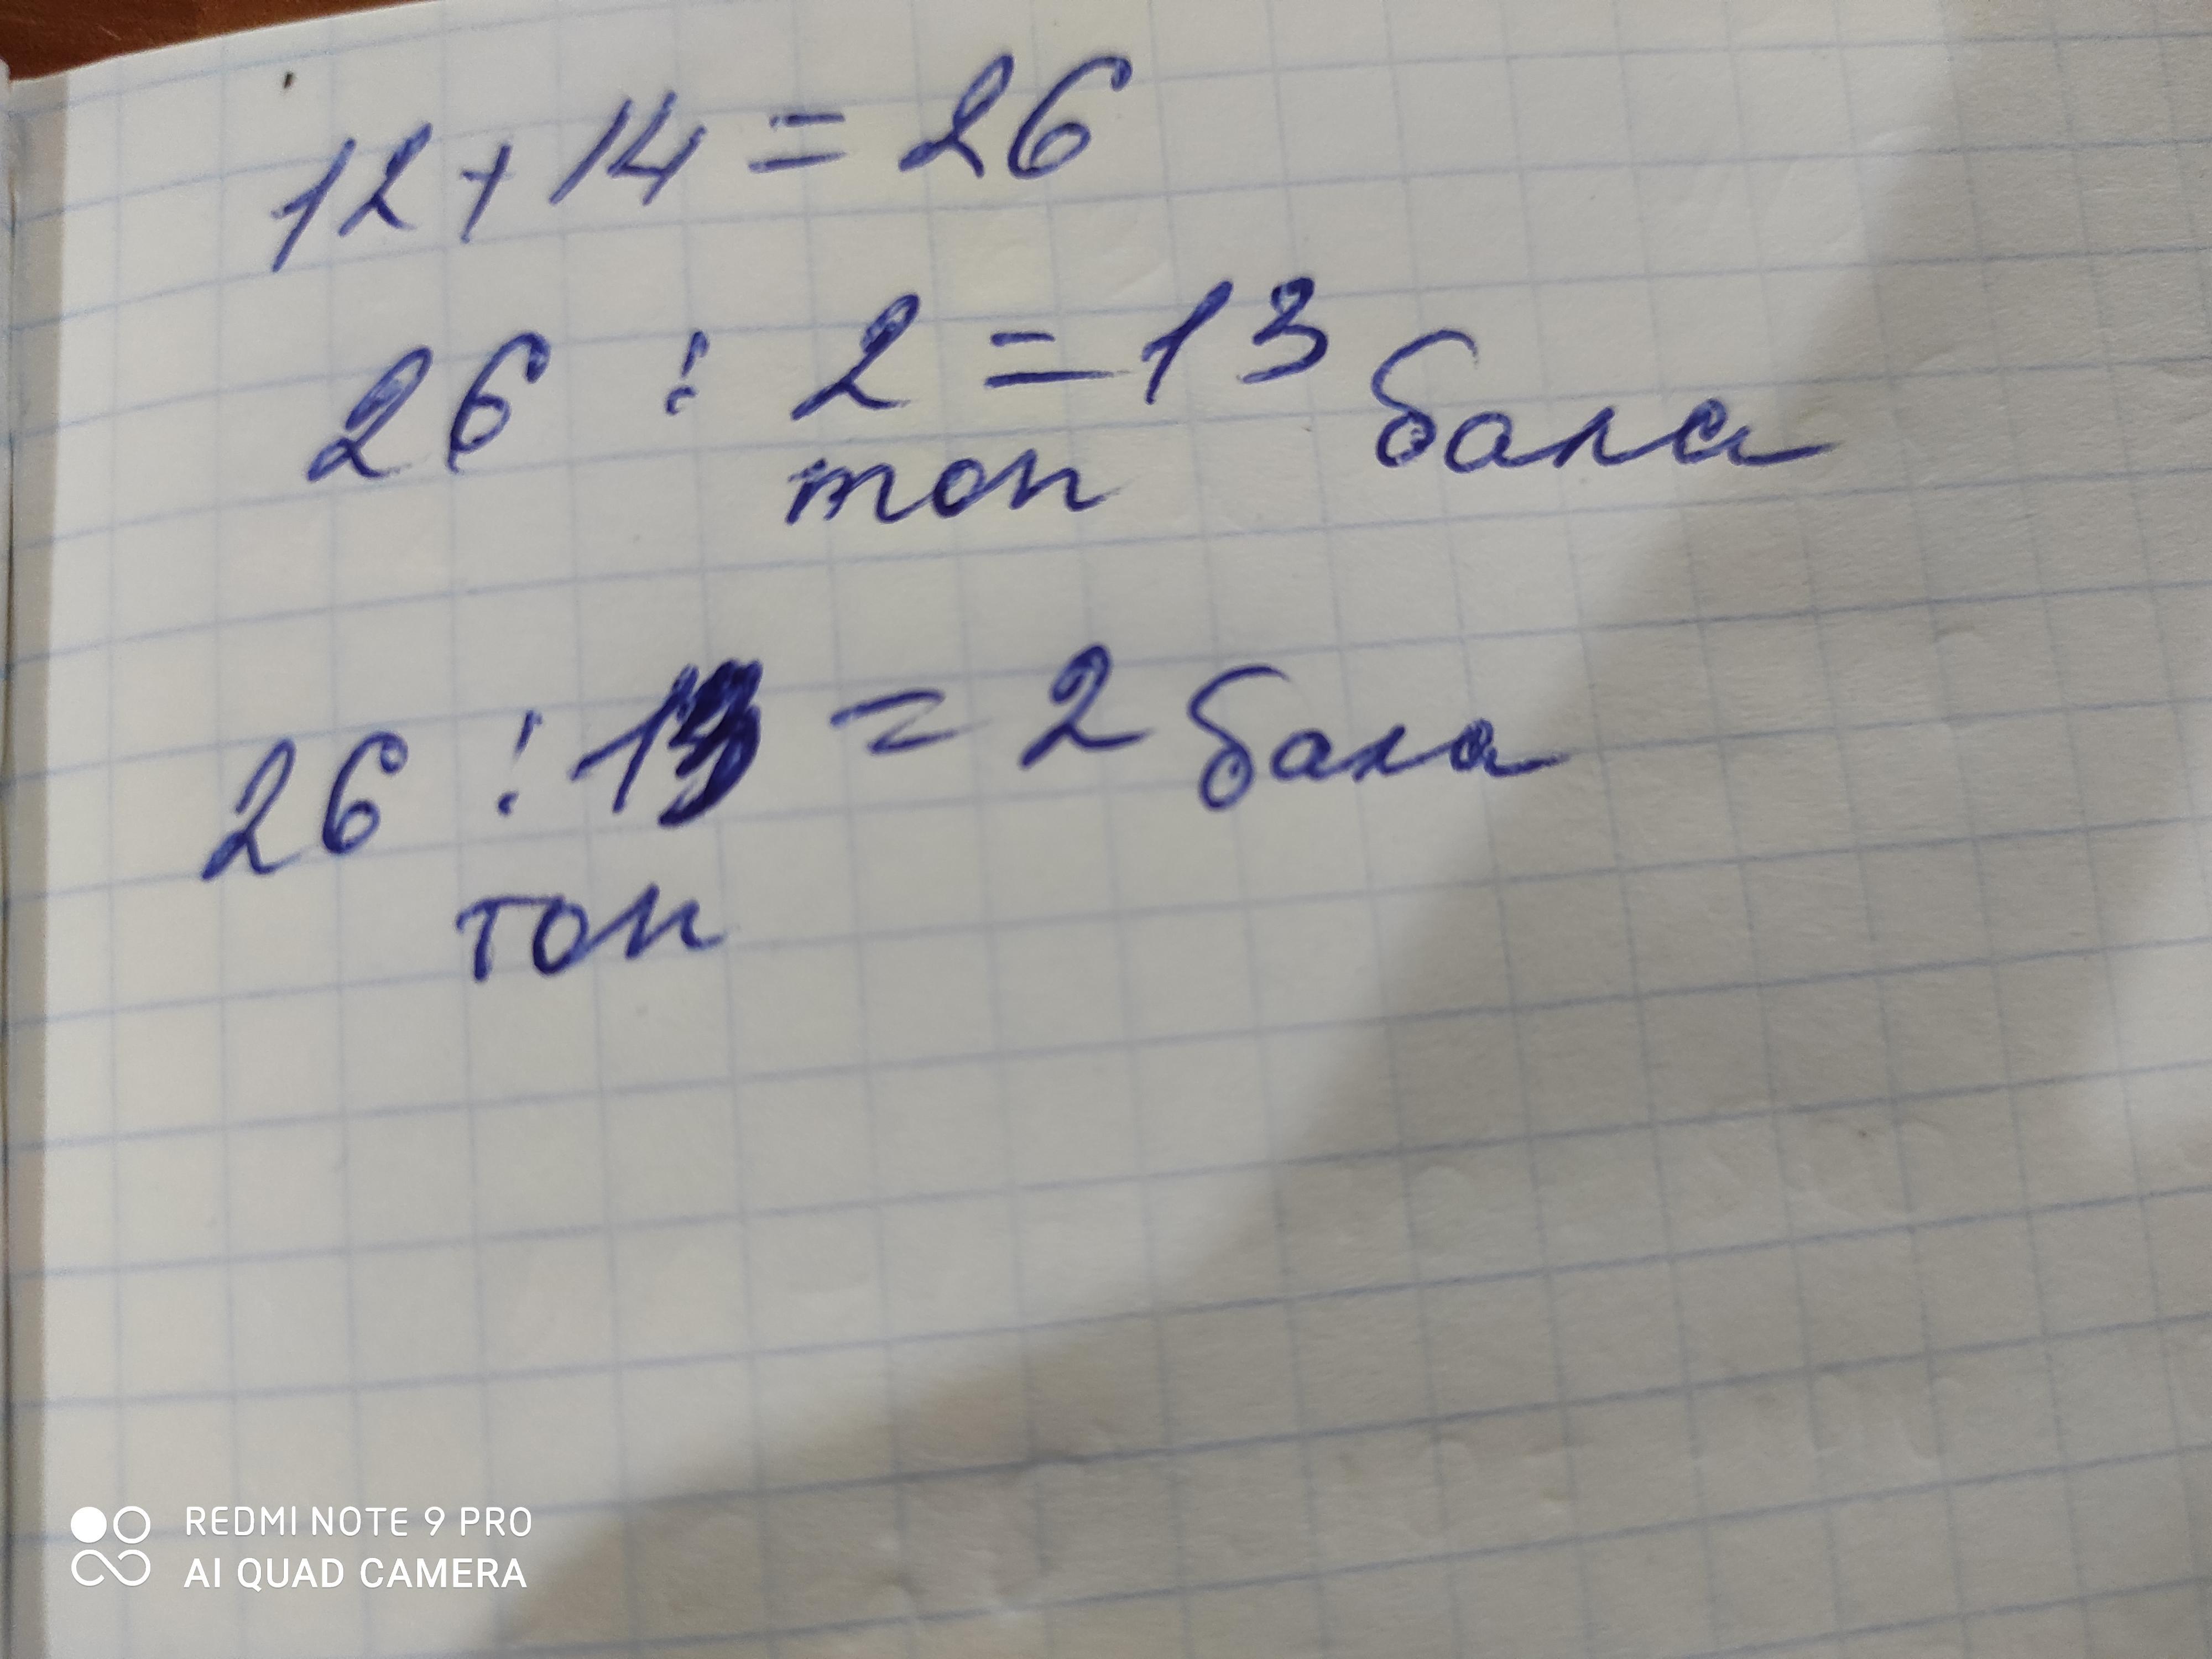 12 + 14 = 26
26 : 2 = 13 бала
топ
26 : 13 = 2 бала
топ
REDMI NOTE 9 PRO
AI QUAD CAMERA